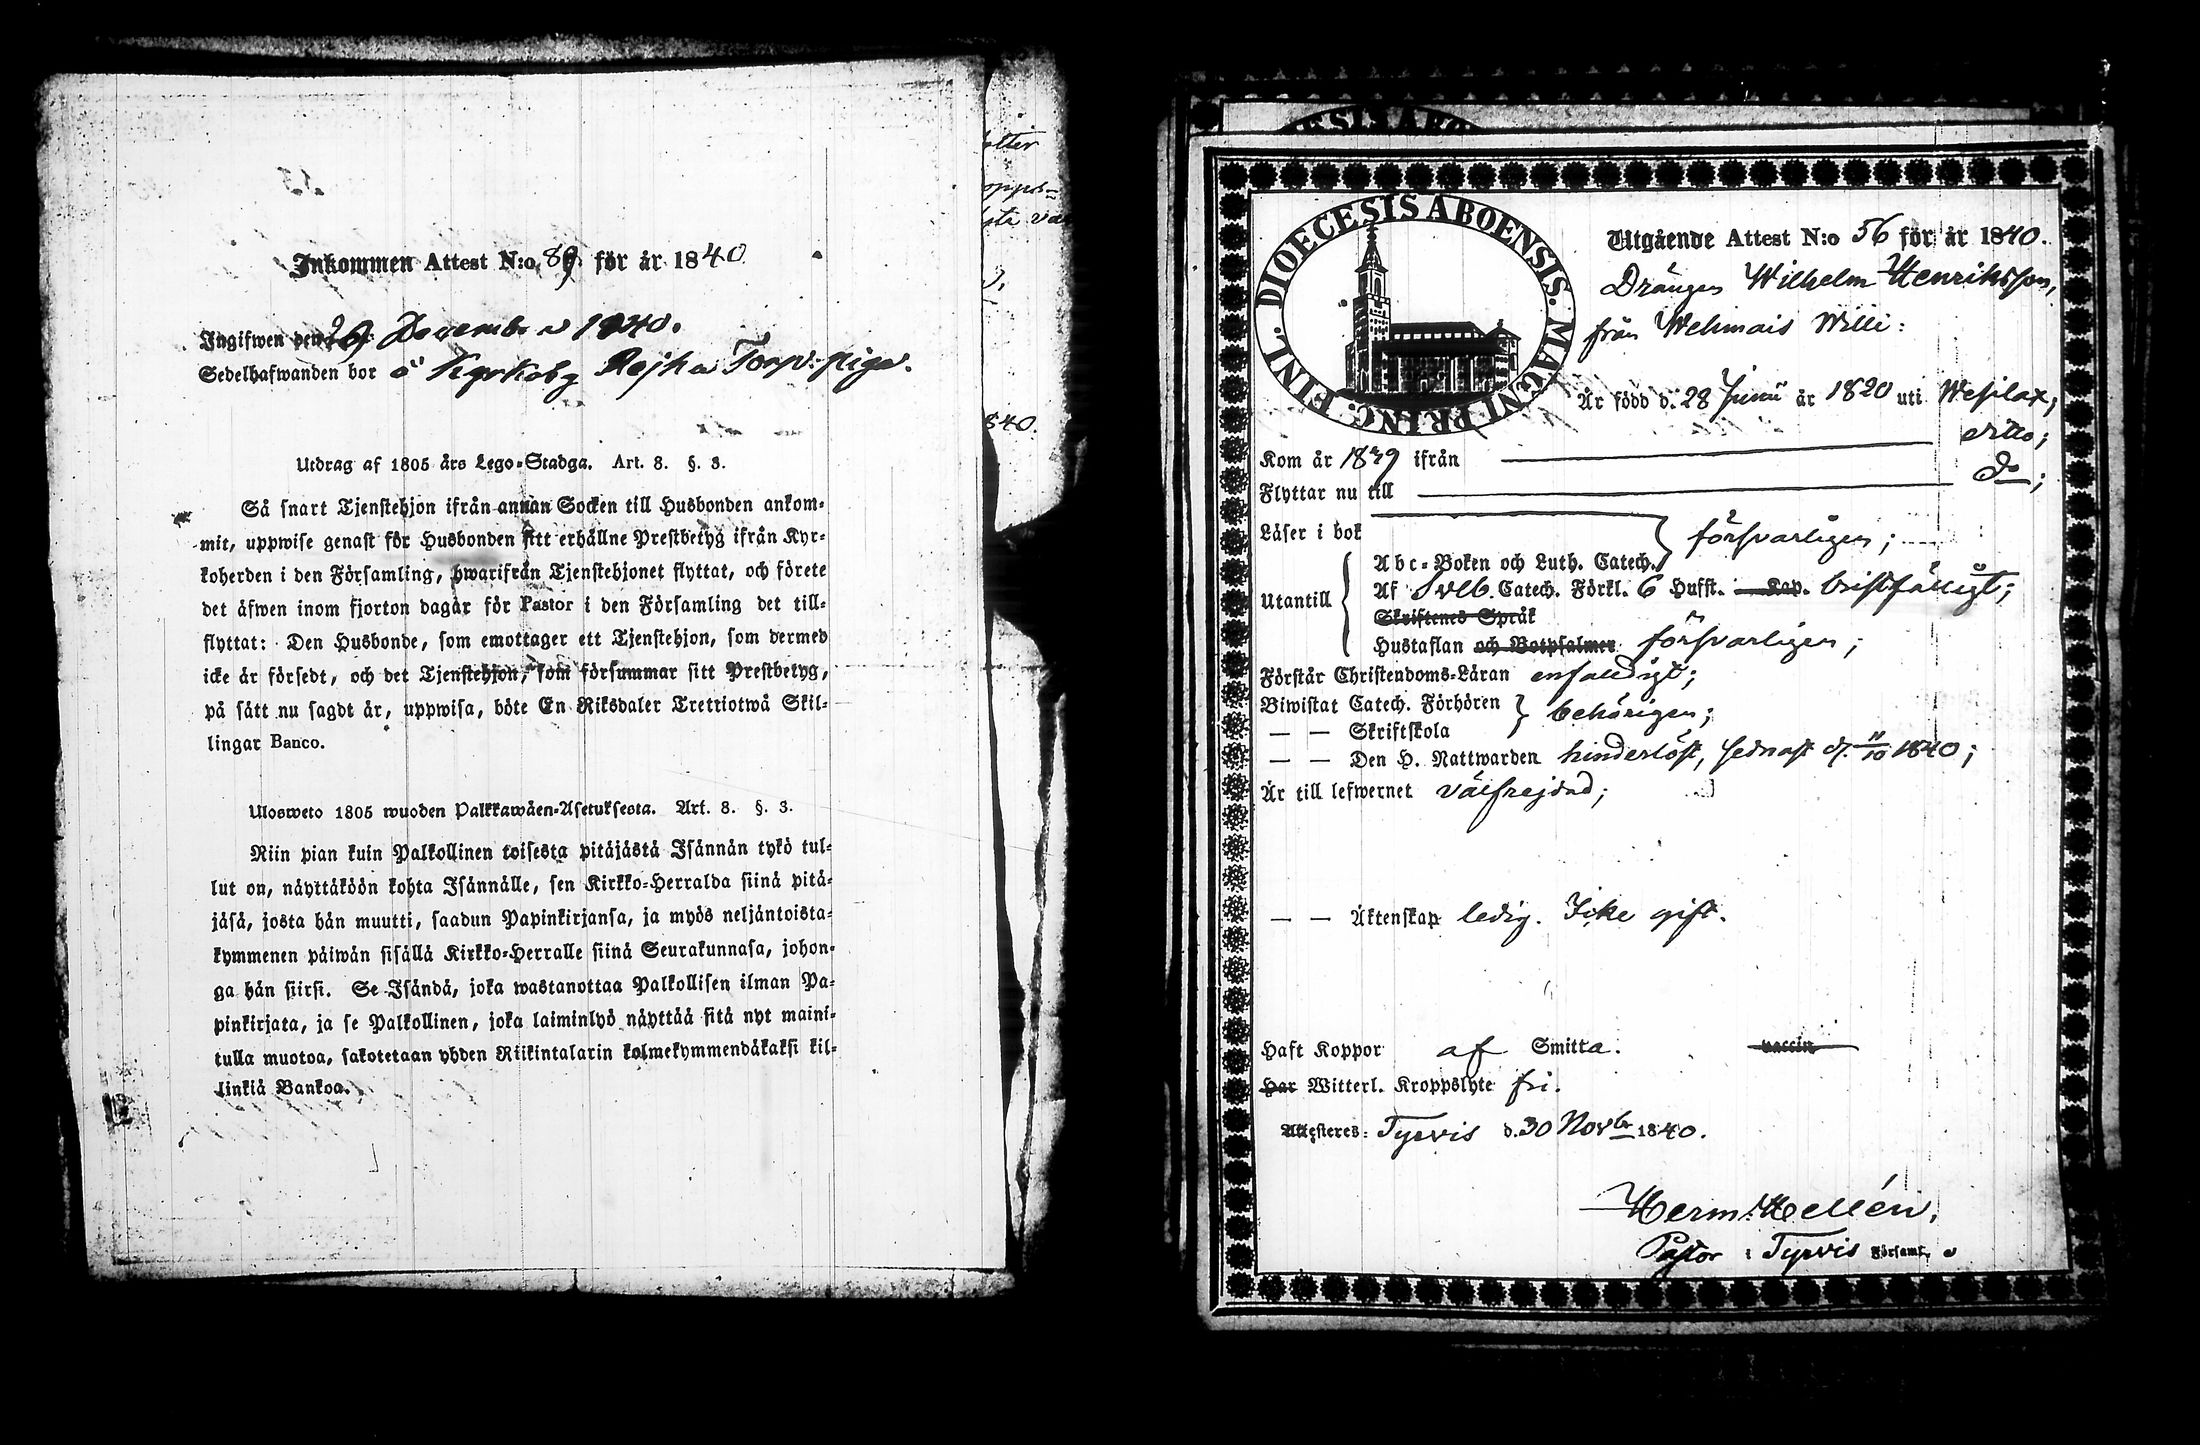 Inkommen Attest N:o 89 för år 1840
Ingifwen den 29 December 1840.
Sedelhafwanden bor å Kyrkoby Rojha Torp: piga.
Utdrag af 1805 års Lego-Stadga. Art. 8. §. 3.
Så snart Tjenstehjon ifrån annan Socken till Husbonden ankom-
mit, uppwise genast för Husbonden sitt erhållne Prestbetyg ifrån Kyr-
koherden i den Församling, hwarifrån Tjenstehjonet flyttat, och förete
det äfwen inom fjorton dagar för Pastor i den Församling det till-
flyttat: Den Husbonde, som emottager ett Tjenstehjon, som dermed
icke är försedt, och det Tjenstehjon, som försummar sitt Prestbetyg,
på sätt nu sagdt är, uppwisa, böte En Riksdaler Trettiotwå Skil-
lingar Banco.
Ulosweto 1805 wuoden Palkkawäen-Asetuksesta. Art. 8. §. 3.
Niin pian kuin Palkollinen toisesta pitäjästä Isännän tykö tul-
lut on, näyttäköön kohta Isännälle, sen Kirkko-Herralda siinä pitä-
jäsä, josta hän muutti, saadun Papinkirjansa, ja myös neljäntoista-
kymmenen päiwän sisällä Kirkko-Herralle siinä Seurakunnasa, johon-
ga hän siirsi. Se Isändä, joka wastanottaa Palkollisen ilman Pa-
pinkirjata, ja se Palkollinen, joka laiminlyö näyttää sitä nyt maini-
tulla muotoa, sakotetaan yhden Riikintalarin kolmekymmendäkaksi kil-
linkiä Bankoa.
otter
840.
DIOECESIS ABOENSIS. MAGNI PRINC. FINL.
Utgående Attest N:o 56 för år 1840.
Drängen Wilhelm Henriksson,
från Wehmais Willi:
Är född d. 28 Junii år 1820 uti Wesilax,
Kom år 1839 ifrån ditto;
Flyttar nu till do;
Läser i bok försvarligen;
Abc-Boken och Luth. Catech.
Utantill Af Svib. Catech. Förkl. 6 Hufst. Kap. bristfälligt;
Skriftenes Språk
Hustaflan och Botpsalmer försvarligen;
Förstår Christendoms-Läran enfaldigt;
Biwistat Catech. Förhören behörigen;
— — Skriftskola
— — Den H. Nattwarden hinderlöst, sednast d. 11/10 1840;
Är till lefwernet välfrejdad;
— — Äktenskap ledig. Icke gift.
Haft Koppor af Smitta. vaccin
Har Witterl. Kroppslyte fri.
Attesteres: Tyrvis d. 30 Novbr 1840.
Herm. Hellén,
Pastor i Tyrvis Församl.